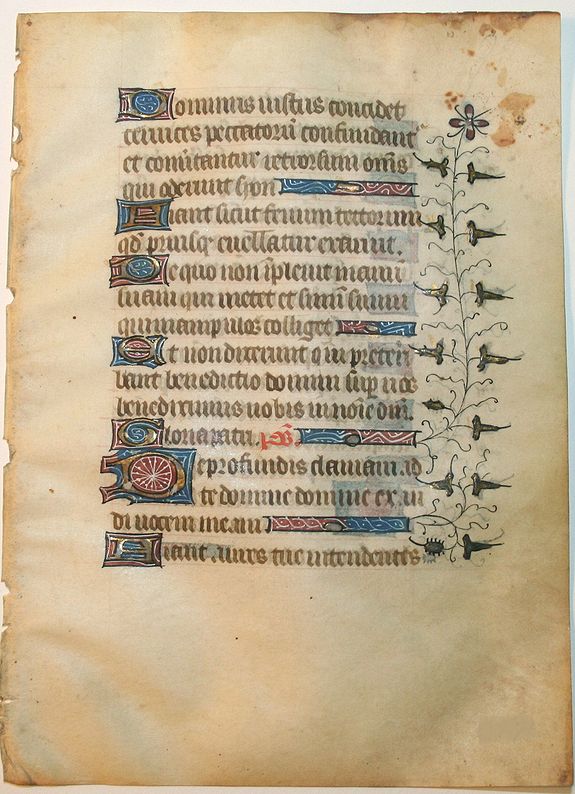 Dominus iustus concidet
ceruices peccatorū confundant᷑
et conũtantur retrorsum om̄s
qui oderunt syon
Fiant sicut fenum tectorum
qd̄ priusq̄ euellatur exaruit.
De quo non īpleuit manū
suam qui metet et sinū suum
qui manipulos colliget
Et non dixerunt qui preteri
bant benedictio domini sup̄ uos
benediximus uobis in noīe dn̄i.
Gloria patri. ps̄.
De profundis clamaui ad
te domine domine exau
di uocem meam
Fiant aures tue intendentes